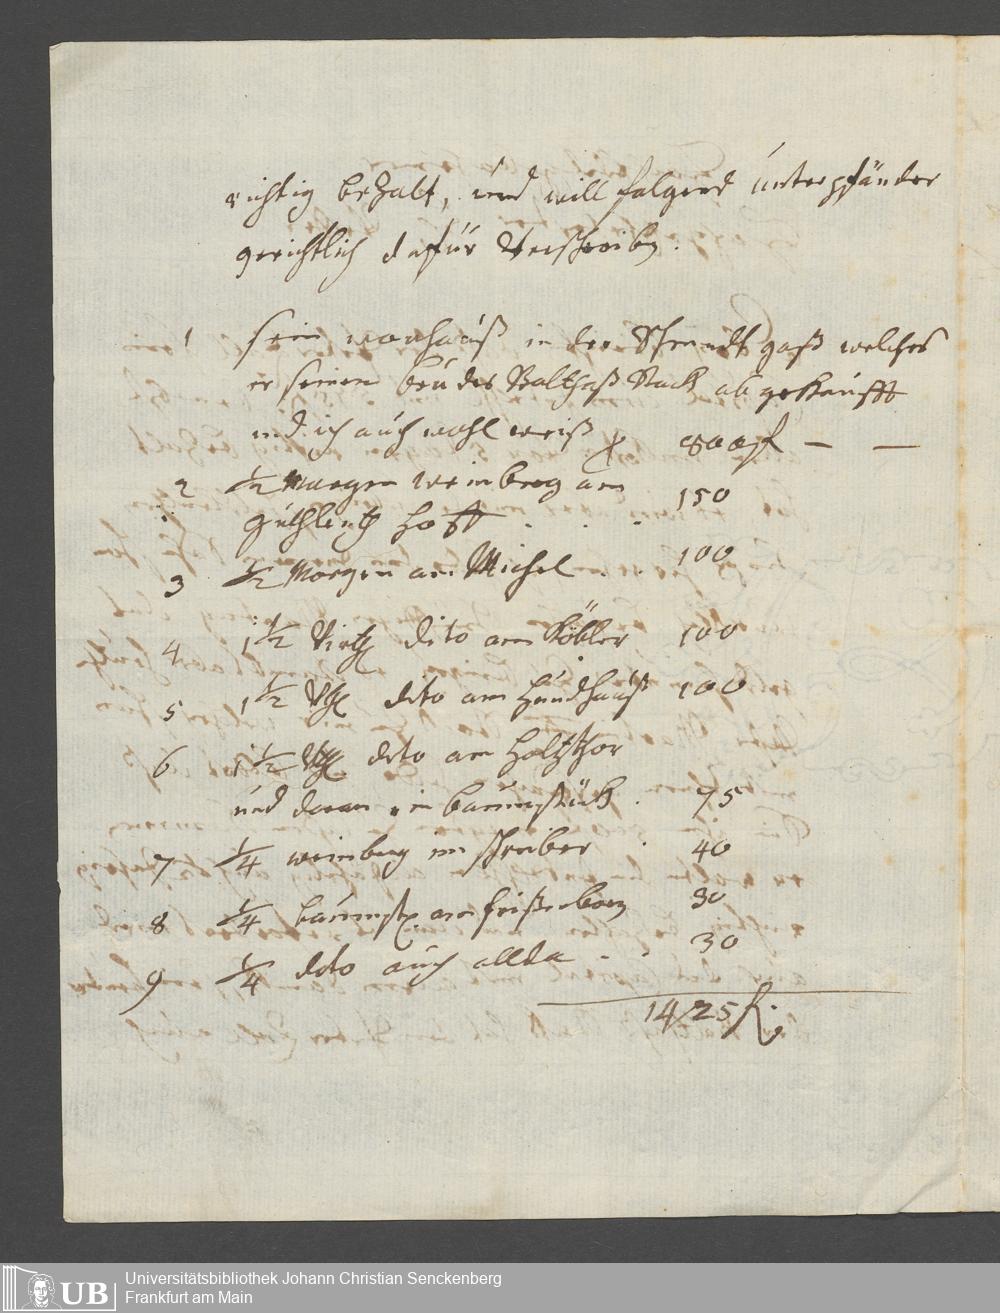 richtig bezalt, und will folgend unterpfänder
gerichtlich dafür verschreiben.
1 sein wonhauß in der gaß welches
er seinen bruder Balthaß abgekaufft
und ich auch wohl weiß 800 f — —
2 1/2 Morgen weinberg am 150
guthleutz hoff . . .
3 1/2 Morgen am Michel . . 100
4 1 1/2 dito am Köbler 100
5 1 1/2 dito am hundhauß 100
6 1 1/2 dito am holtzthor
und daran ein baumstück . 75
7 1/4 weinberg im schreiber . 40
8 1/4 baumst. am 30
9 1/4 dito auch allda . . 30
1425 f.
UB
Universitätsbibliothek Johann Christian Senckenberg
Frankfurt am Main